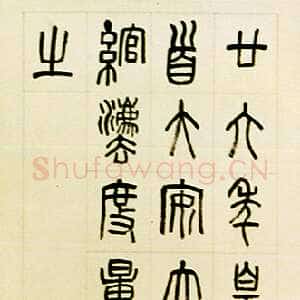 廿六年皇
首大安立
綰灋度量
之
Shufawang.CN